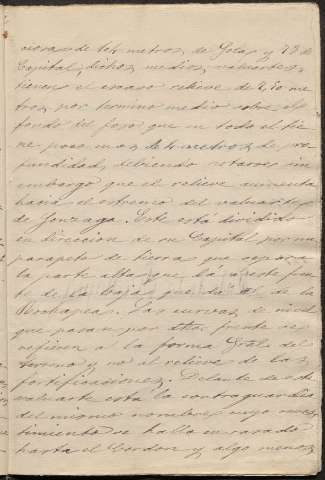 de 104 metros, de Golas y 78 de
Capital, dichos medios baluartes,
tienen el escaso relieve de 2,50 me
tros, por termino medio sobre el
fondo del foso que en todo el tie
ne poco mas de 4 metros de pro
fundidad, debiendo notarse sin
embargo que el relieve aumenta
hacia el estremo del baluarte
de Gonzaga. Este está dividido
en direccion de su Capital por un
parapeto de tierra que separa
la parte alta que dá a este fren
te de la baja que dá al de la
Las curvas de nivel
que pasan por dho. frente se
refieren a la forma Gral. del
terreno y no al relieve de las
fortificaciones. Delante de este
baluarte está la contraguardia
del mismo nombre cuyo reves
timiento se halla enrasado
hasta el Cordon y algo menos,